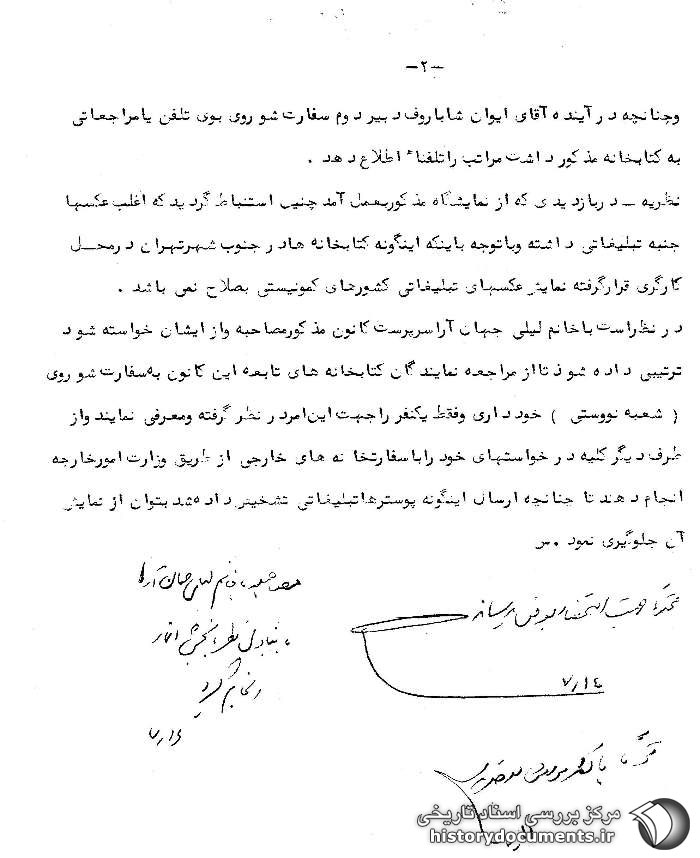 -۲-
وچنانچه در آینده آقای ایوان شاباروف دبیر دوم سفارت شوروی بوی تلفن یا مراجعاتی
به کتابخانه مذکور داشت مراتب را تلفناً اطلاع دهد .
نظریه ـ در بازدیدی که از نمایشگاه مذکور بعمل آمد چنین استنباط گردید که اغلب عکسها
جنبه تبلیغاتی داشته و با توجه باینکه اینگونه کتابخانه ها در جنوب شهر تهران در محل
کارگری قرار گرفته نمایش عکسهای تبلیغاتی کشورهای کمونیستی بصلاح نمی باشد .
در نظر است با خانم لیلی جهان آرا سرپرست کانون مذکور مصاحبه و از ایشان خواسته شود
ترتیبی داده شود تا از مراجعه نمایندگان کتابخانه های تابعه این کانون به سفارت شوروی
( شعبه نووستی ) خودداری و فقط یکنفر را جهت این امر در نظر گرفته و معرفی نمایند و از
طرف دیگر کلیه درخواستهای خود را با سفارتخانه های خارجی از طریق وزارت امور خارجه
انجام دهند تا چنانچه ارسال اینگونه پوسترها تبلیغاتی تشخیص داده شد بتوان از نمایش
آن جلوگیری نمود .س
مصاحبه با خانم لیلی جهان آرا
انجام گردید
۷/۱۶
جهت استحضار بعرض میرساند
۷/۱۴
مرکز بررسی اسناد تاریخی
historydocuments.ir